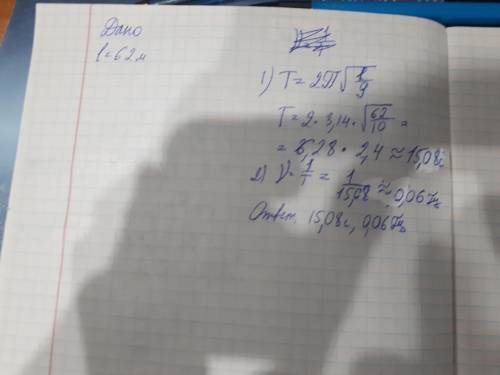 Дано
l = 62 м
1) T = 2П√(l/g)
T = 2 · 3,14 · √(62/10) =
= 6,28 · 2,4 ≈ 15,08с
2) ν = 1/T = 1/15,08 ≈ 0,06 Гц
Ответ, 15,08с, 0,06 Гц